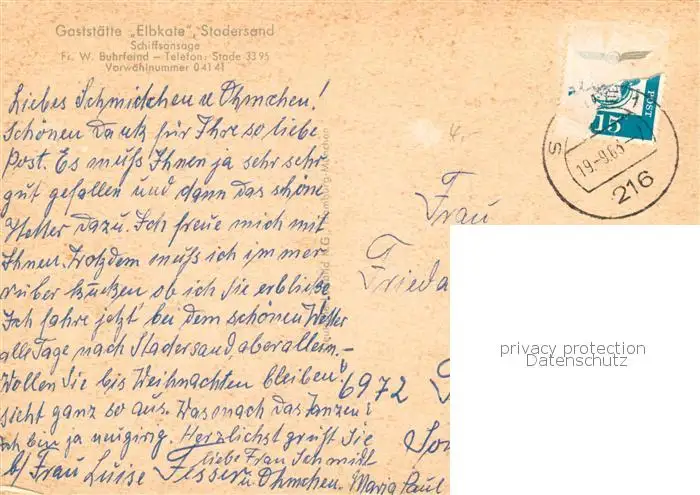 Gaststätte „Elbkate“, Stadersand
Schiffsansage
Fr. W. Buhrfeind – Telefon: Stade 33 95
Vorwahlnummer 0 41 41
Liebes Schmidchen u Ohmchen!
Schönen Dank für Ihre so liebe
Post. Es muß Ihnen ja sehr sehr
gut gefallen und dann das schöne
Wetter dazu. Ich freue mich mit
Ihnen. Trotzdem muß ich immer
rüber kucken ob ich Sie erblicke
Ich fahre jetzt bei dem schönen Wetter
alle Tage nach Stadersand, aber allein. –
Wollen Sie bis Weihnachten bleiben?
sieht ganz so aus. Was nach das Tanzen?
Ich bin ja neugirig. Herzlichst grüßt Sie
liebe Frau Schmidt
b/ Frau Luise Fesser u Ohmchen. Maria Paul
4.
Frau
Frieda
6972
POST
15
19.-9.68
216
privacy protection
Datenschutz